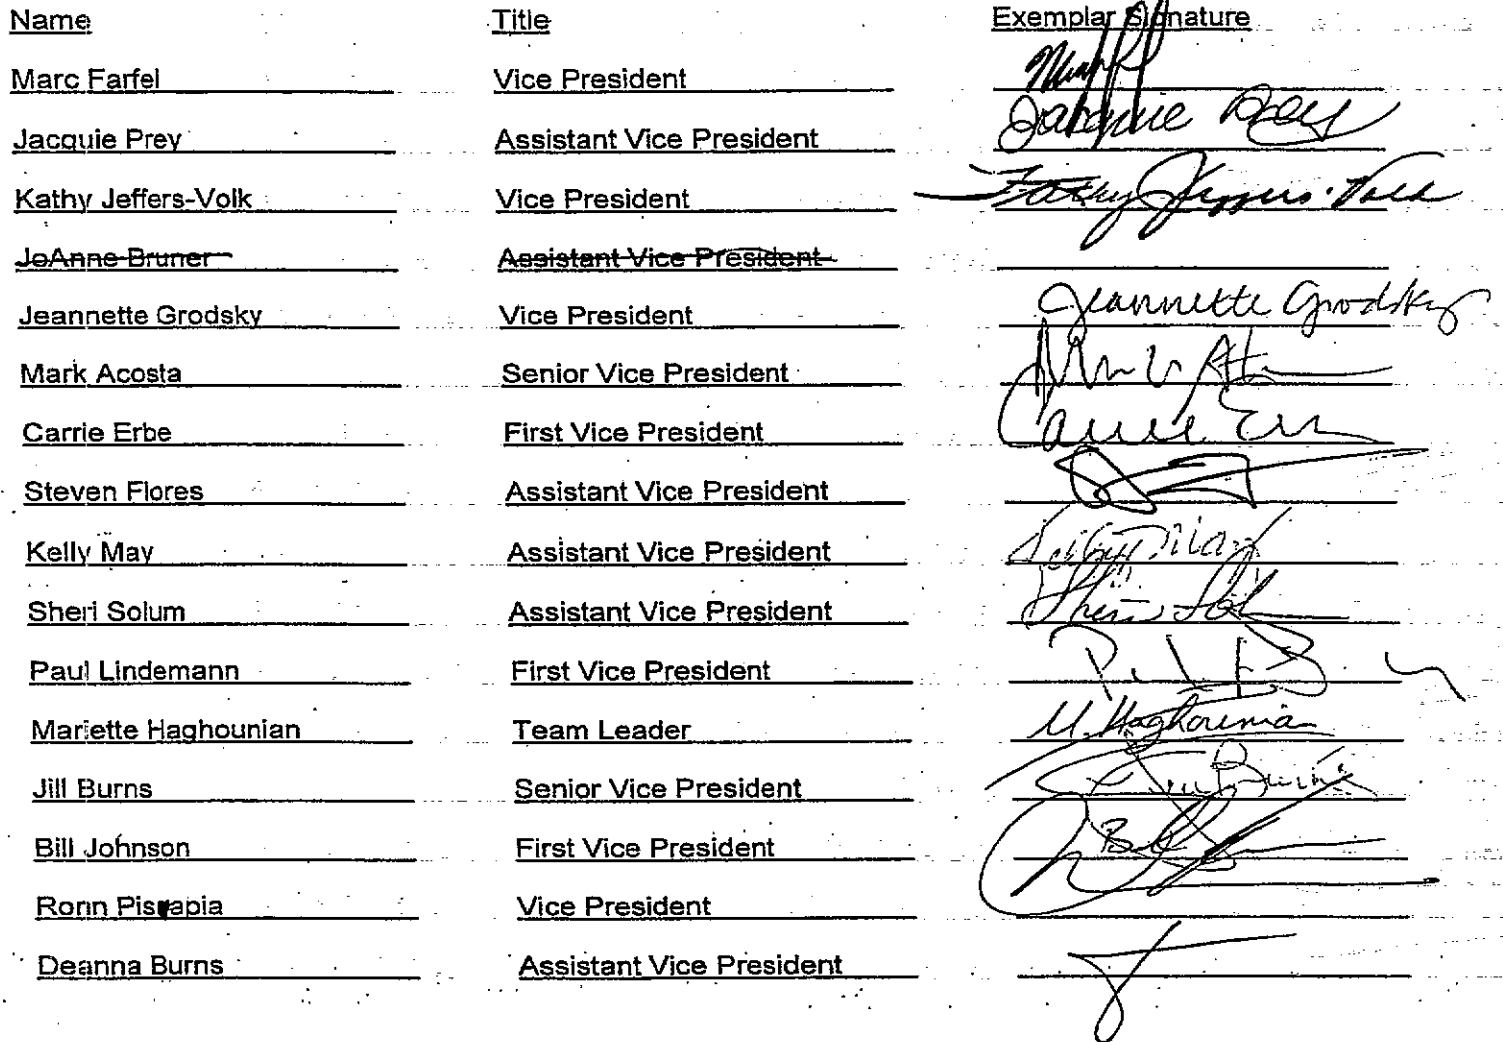 Name Title Exemplar Signature
Marc Farfel Vice President
Jacquie Prey Assistant Vice President Jacquie Prey
Kathy Jeffers-Volk Vice President Kathy Jeffers-Volk
JoAnne Bruner Assistant Vice President
Jeannette Grodsky Vice President Jeannette Grodsky
Mark Acosta Senior Vice President
Carrie Erbe First Vice President Carrie
Steven Flores Assistant Vice President
Kelly May Assistant Vice President Kelly May
Sheri Solum Assistant Vice President Sheri
Paul Lindemann First Vice President
Mariette Haghounian Team Leader M. Haghounian
Jill Burns Senior Vice President Burns
Bill Johnson First Vice President Bill
Ronn Pisapia Vice President
Deanna Burns Assistant Vice President